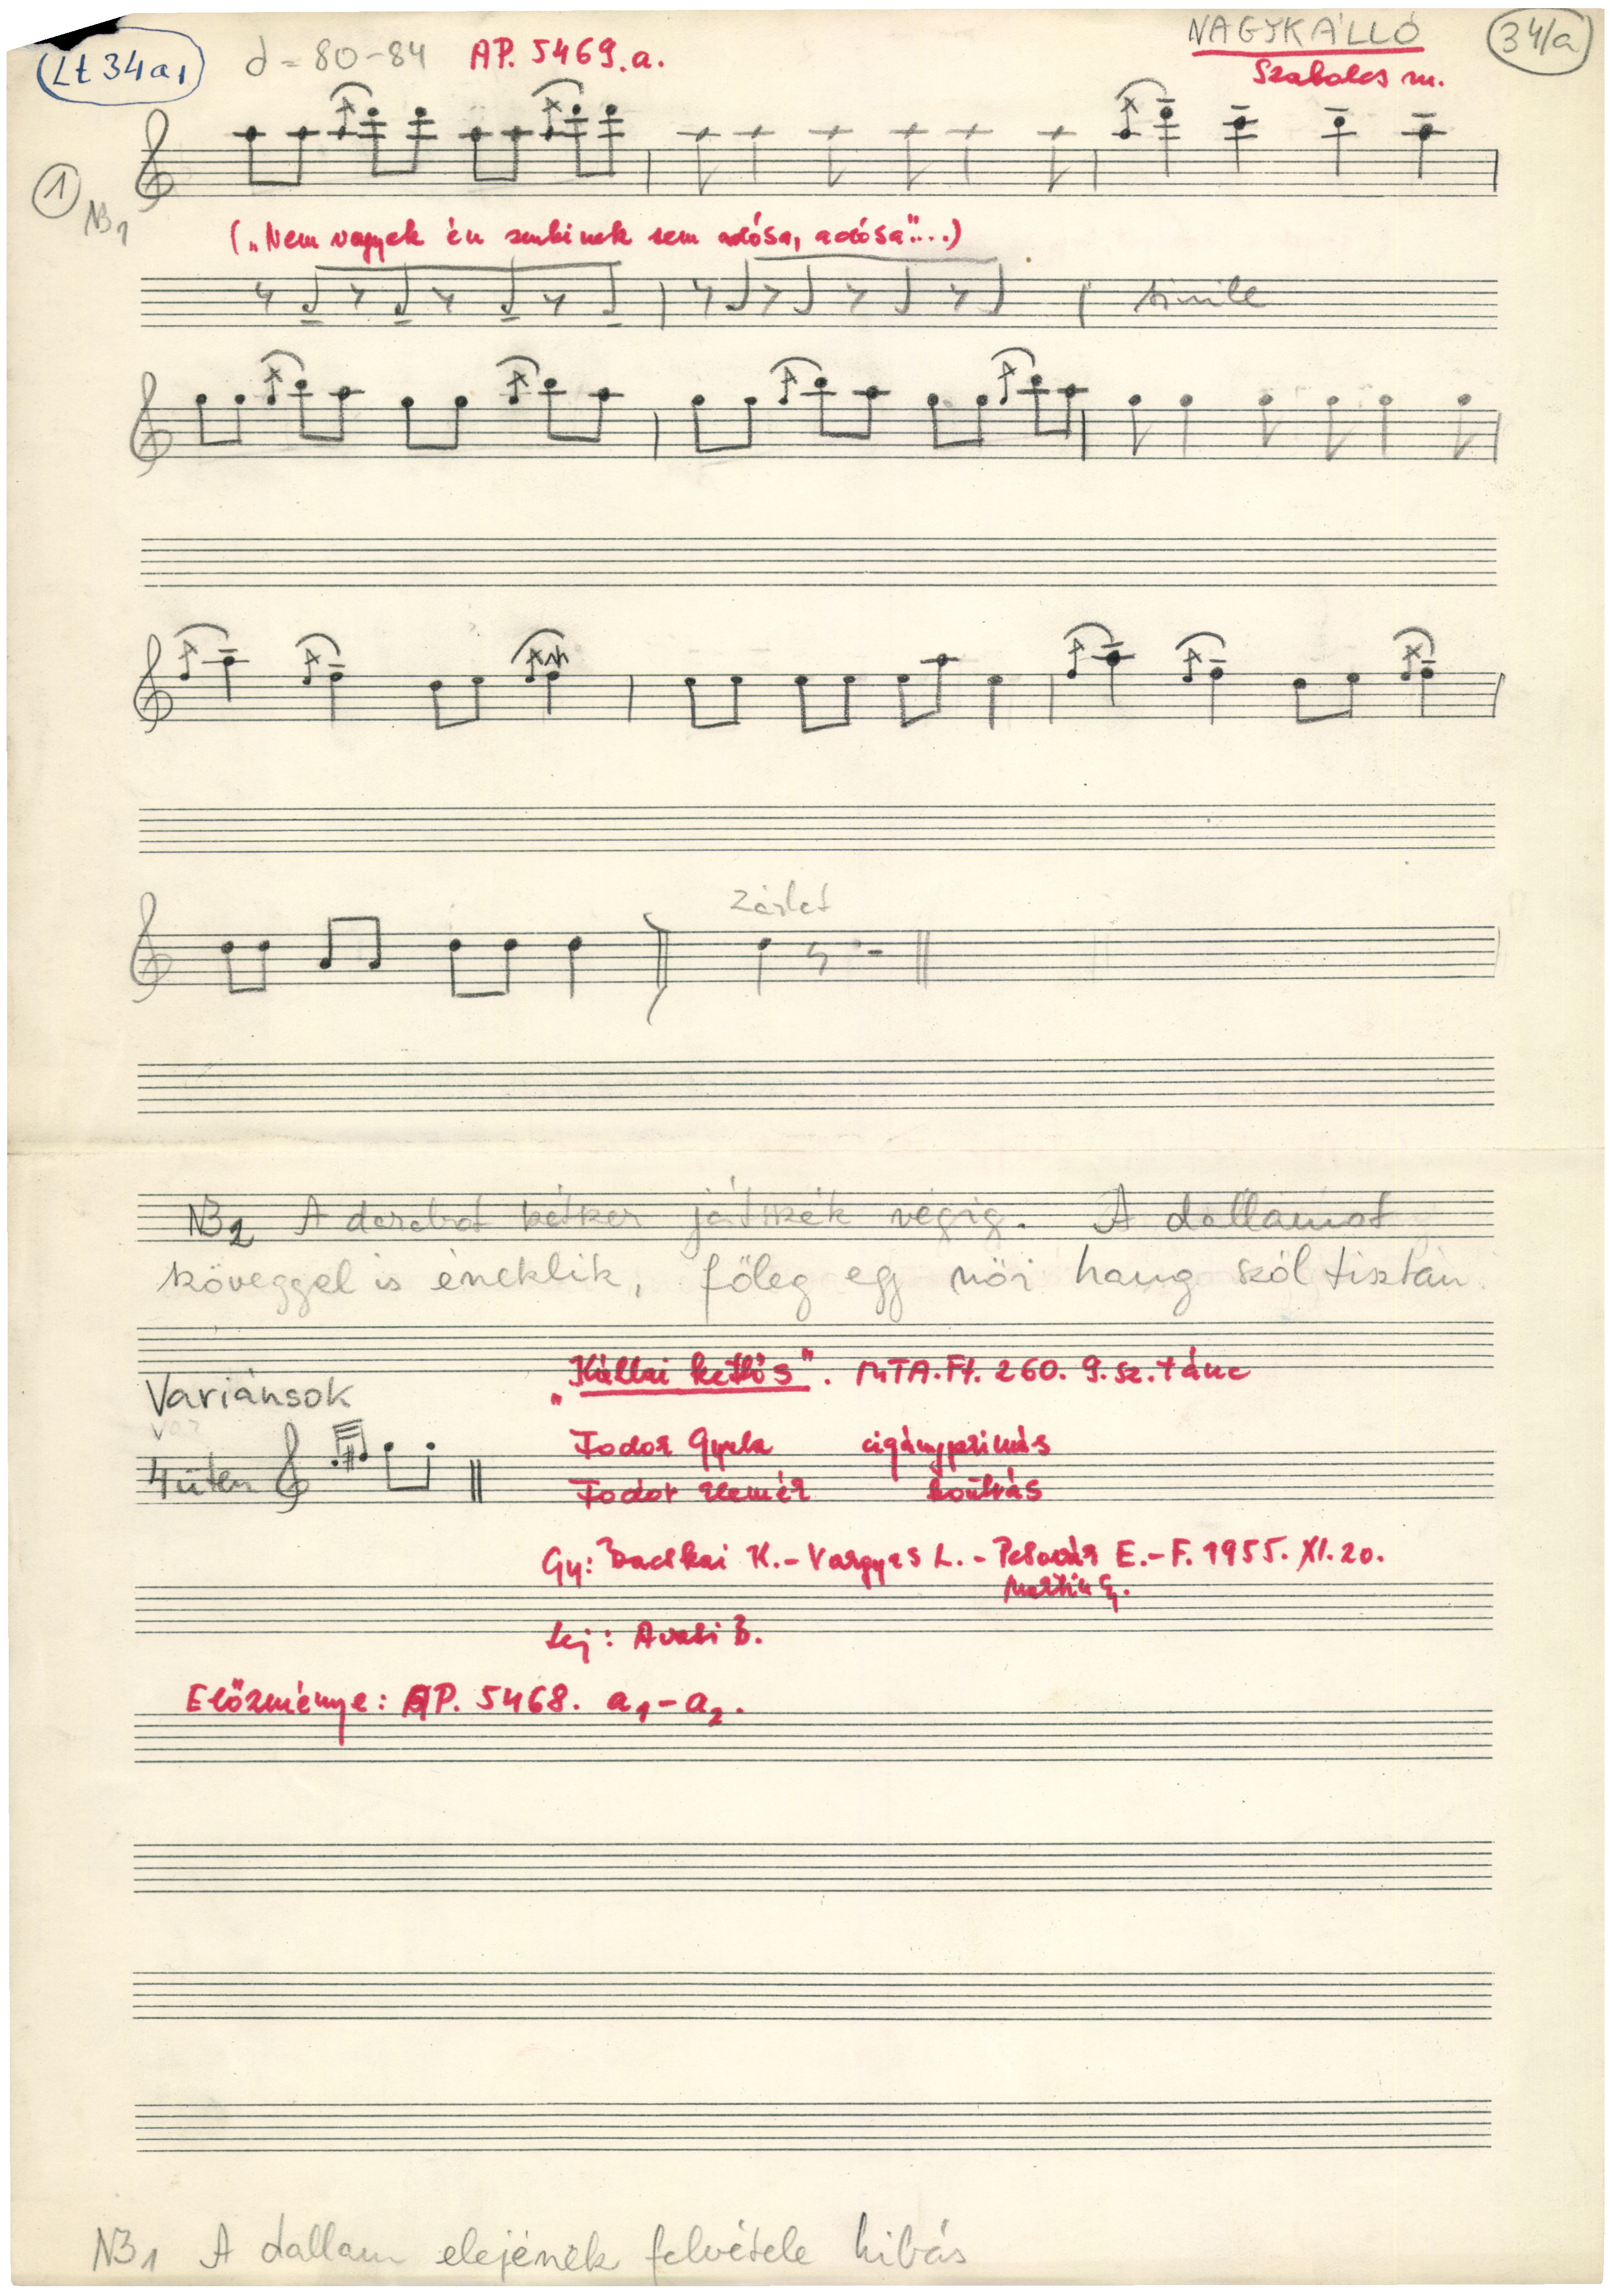 Lt 34a1
𝅗𝅥 = 80-84 AP. 5469.a.
NAGYKÁLLÓ
34/a
Szabolcs m.
1
NB1
("Nem vagyok én senkinek sem adósa, adósa"...)
simile
Zárlat
NB2 A darabot kétszer játszék végig. A dallamot
szöveggel is éneklik, főleg egy női hang szól tisztán.
"Kállai kettős". MTA.Ft. 260. 9.sz.tánc
Variánsok
var
Fodor Gyula cigányprímás
4 ütem
Fodor Elemér kontrás
Gy: Bacskai K.-Vargyas L.-Pesovár E.-F. 1955. XI. 20.
Martin Gy.
Lej: Avasi B.
Előzménye: AP. 5468. a1-a2.
NB1 A dallam elejének felvétele hibás